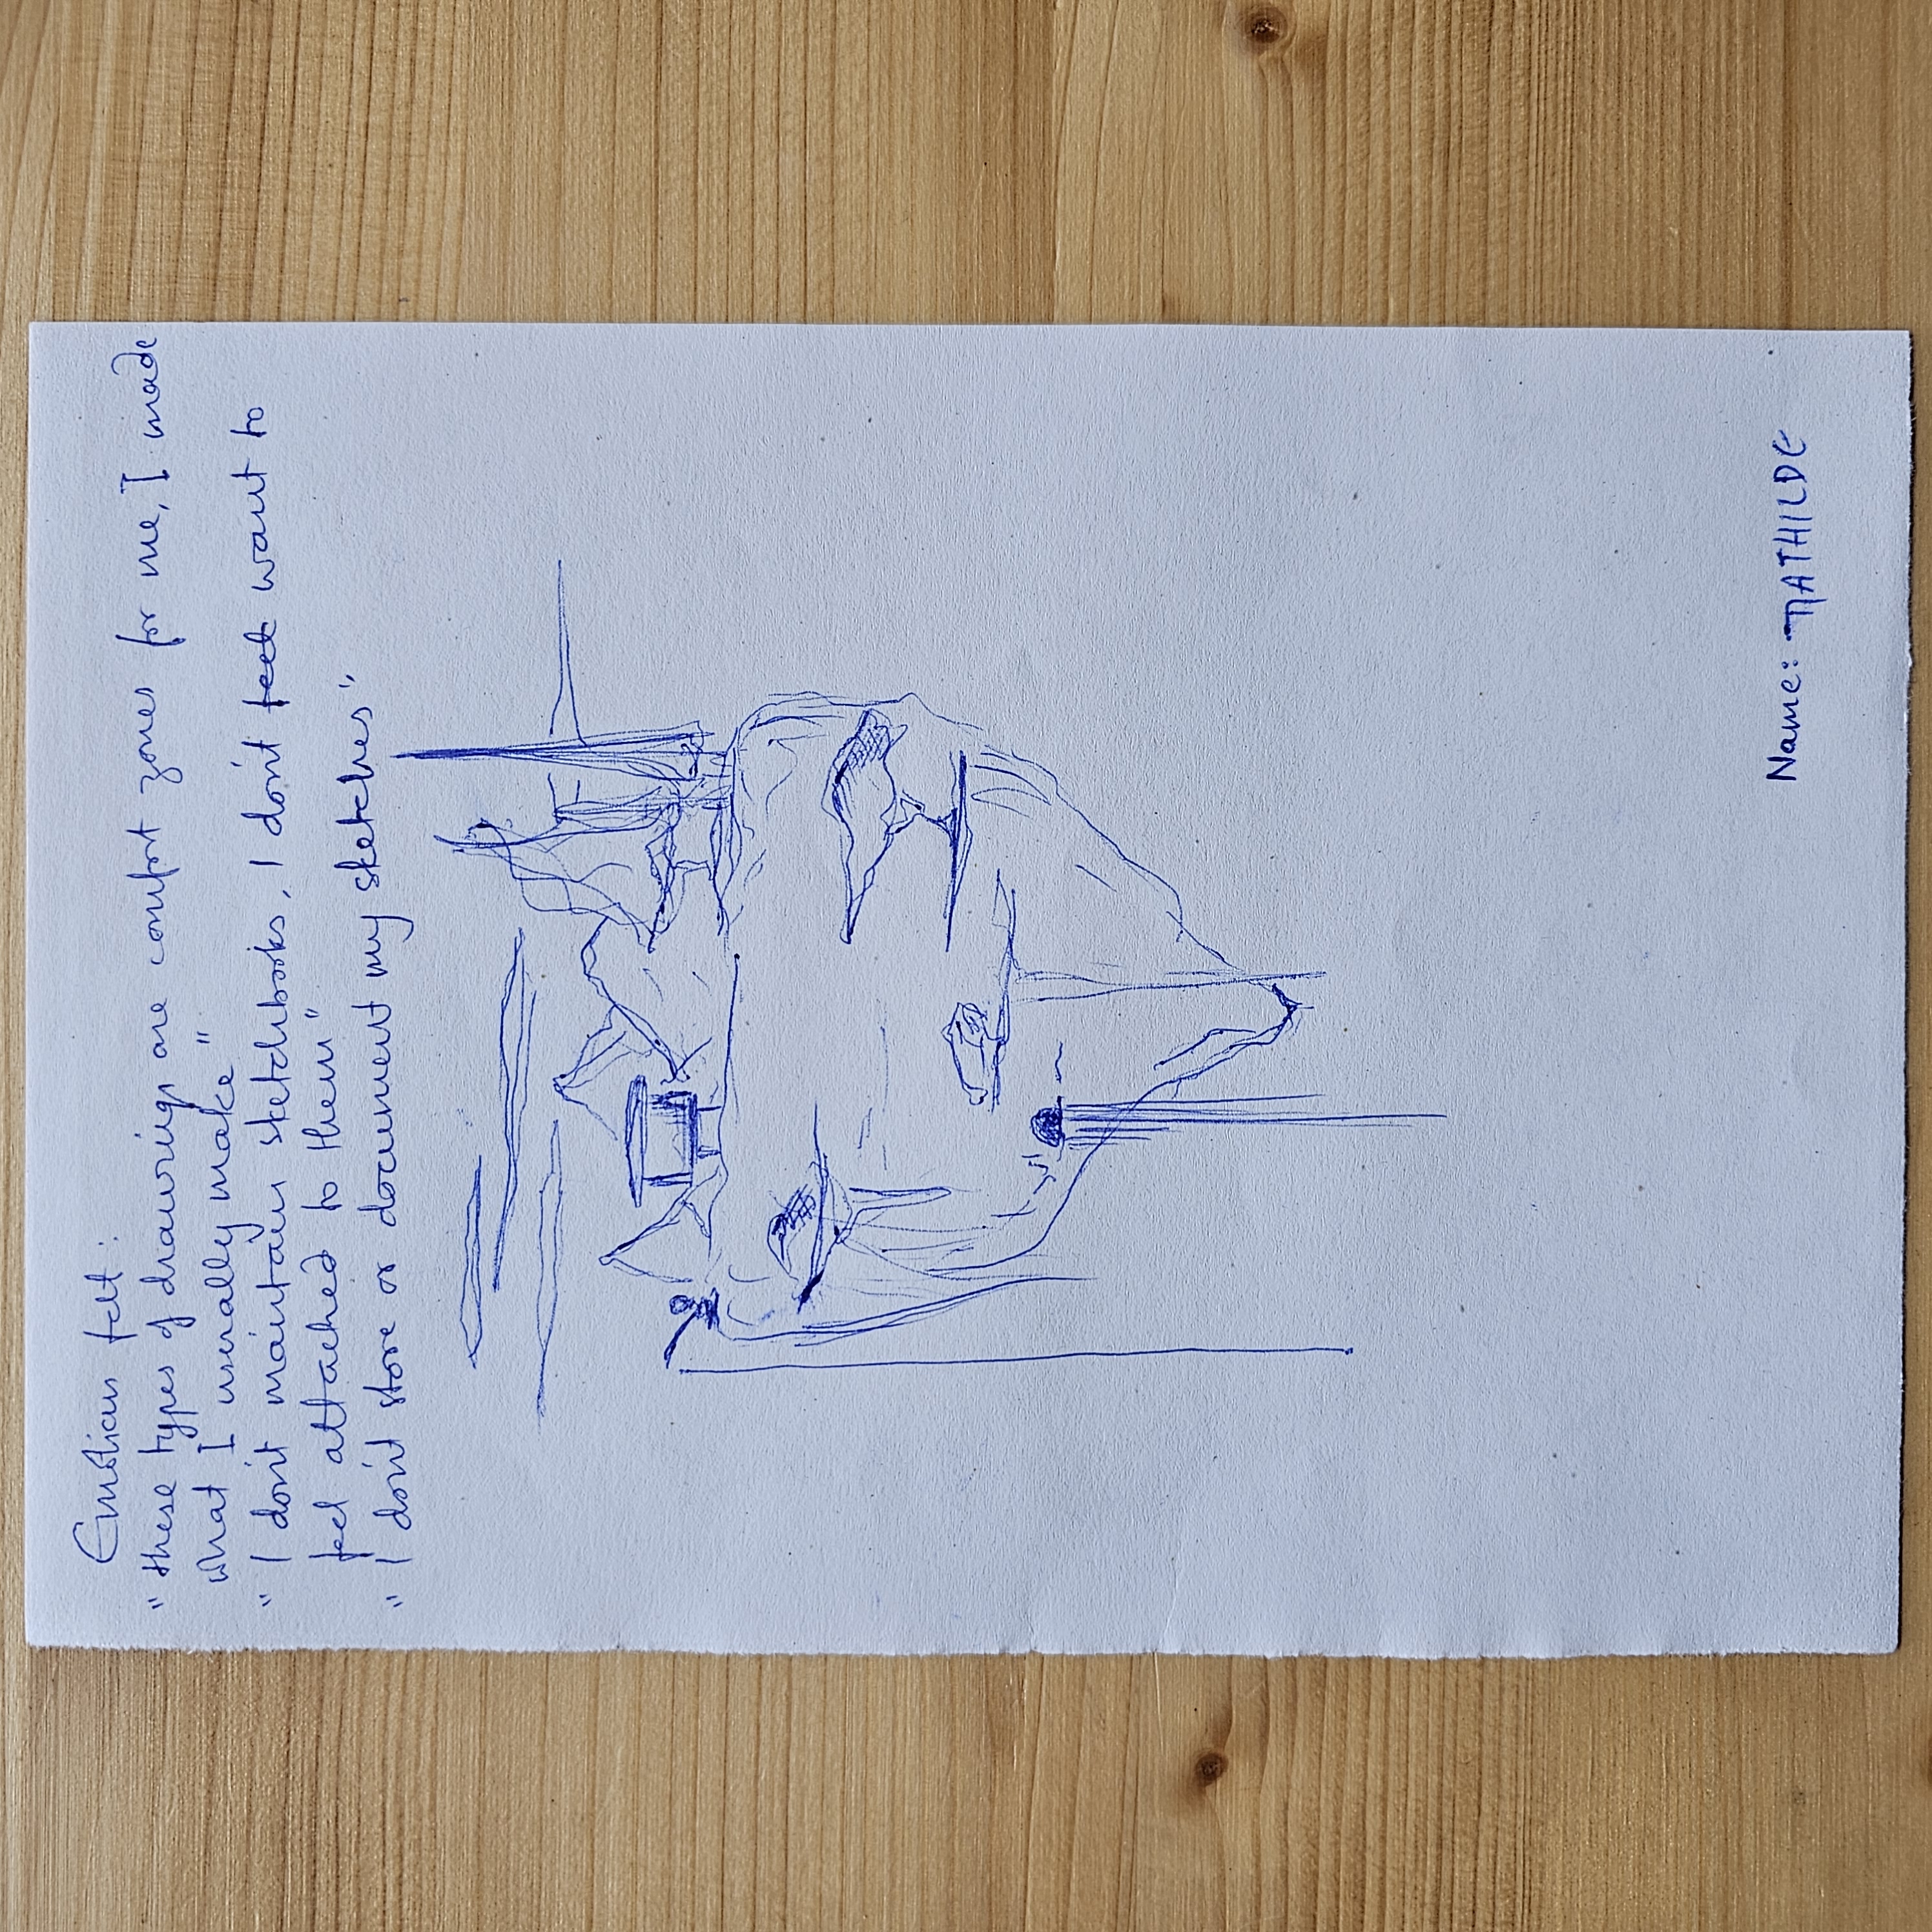 Emotions felt:
"these types of drawings are comfort zones for me, I made
what I usually make"
"I don't maintain sketchbooks, I don't feel want to
feel attached to them"
"I don't store or document my sketches"
Name: MATHILDE